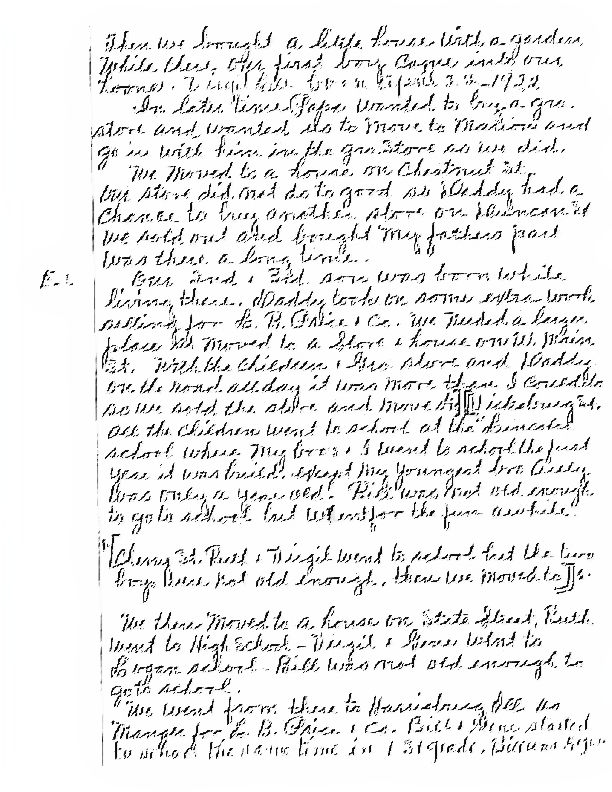 Then we bought a little house with a garden
While there, Our first boy came into our
home. Virgil  born April 22-1922
In later time Papa wanted to buy a gro.
store and wanted us to Move to Madison and
go in with him in the gro Store as we did.
We Moved to a house on Chestnut St.
Our store did not do to good so Daddy had a
Chance to buy another store on  St
We sold out and bought My fathers part
Was there a long time.
E-1 Our 2nd & 3rd son was born while
living there. Daddy took on some extra work
selling for L. B. Price & Co. We Needed a larger
place so Moved to a Store & house on W. Main
St. With the Children & Gro store and Daddy
on the road all day it was more than I could do
so we sold the store and move to [[Vicksburg St.
all the Children went to school at the Lincoln
school where My bros & I went to school the first
year it was build. except My Youngest bro
Was only a year old. Bill was not old enough
to go to school but went for the fun awhile.
"[Cherry St. Ruth & Virgil went to school but the two
boys were not old enough, then we moved to]]s.
We then Moved to a house on State Street, Ruth
Went to High School - Virgil & Gene Went to
Logan school - Bill was not old enough to
goto school.
We went from there to Harrisburg Ill as
Manger for L. B. Price & Co. Bill & Gene started
to school the same time in 1st grade.